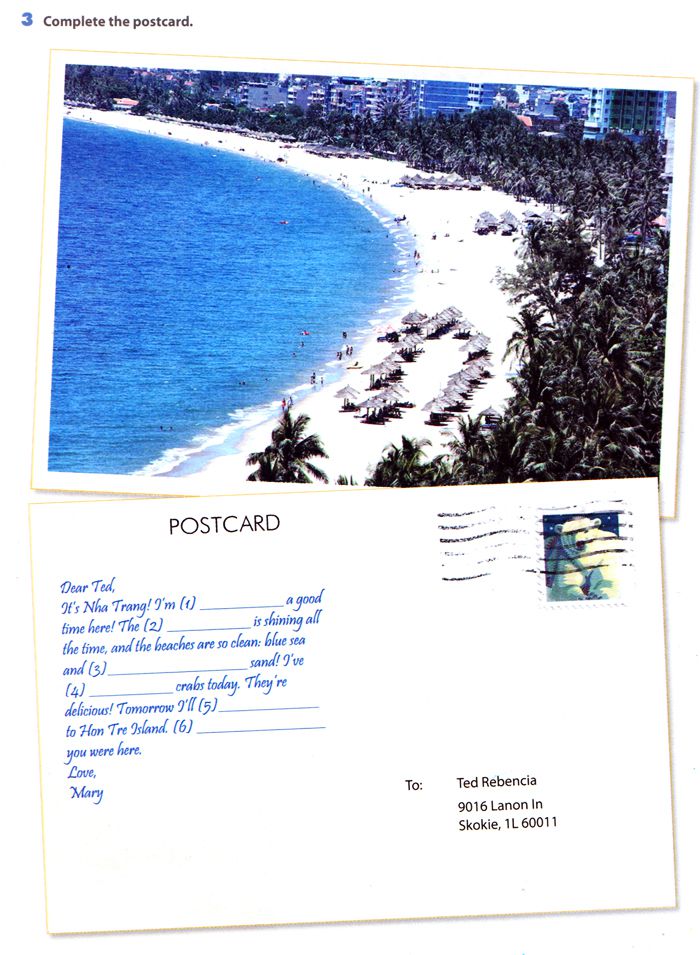 3 Complete the postcard.
POSTCARD
Dear Ted,
It's Nha Trang! I'm (1) ____________ a good
time here! The (2) ____________ is shining all
the time, and the beaches are so clean: blue sea
and (3) ____________________ sand! I've
(4) ____________ crabs today. They're
delicious! Tomorrow I'll (5) ______________
to Hon Tre Island. (6) __________________
you were here.
Love,
Mary
To: Ted Rebencia
9016 Lanon In
Skokie, 1L 60011